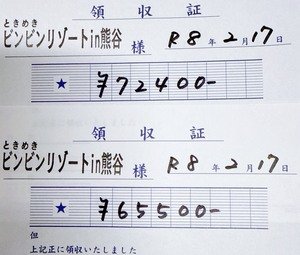 領収証
ときめき
ピンピンリゾートin熊谷 様 R8年2月17日
★ ¥72400-
領収証
ときめき
ピンピンリゾートin熊谷 様 R8年2月17日
★ ¥65500-
但
上記正に領収いたしました